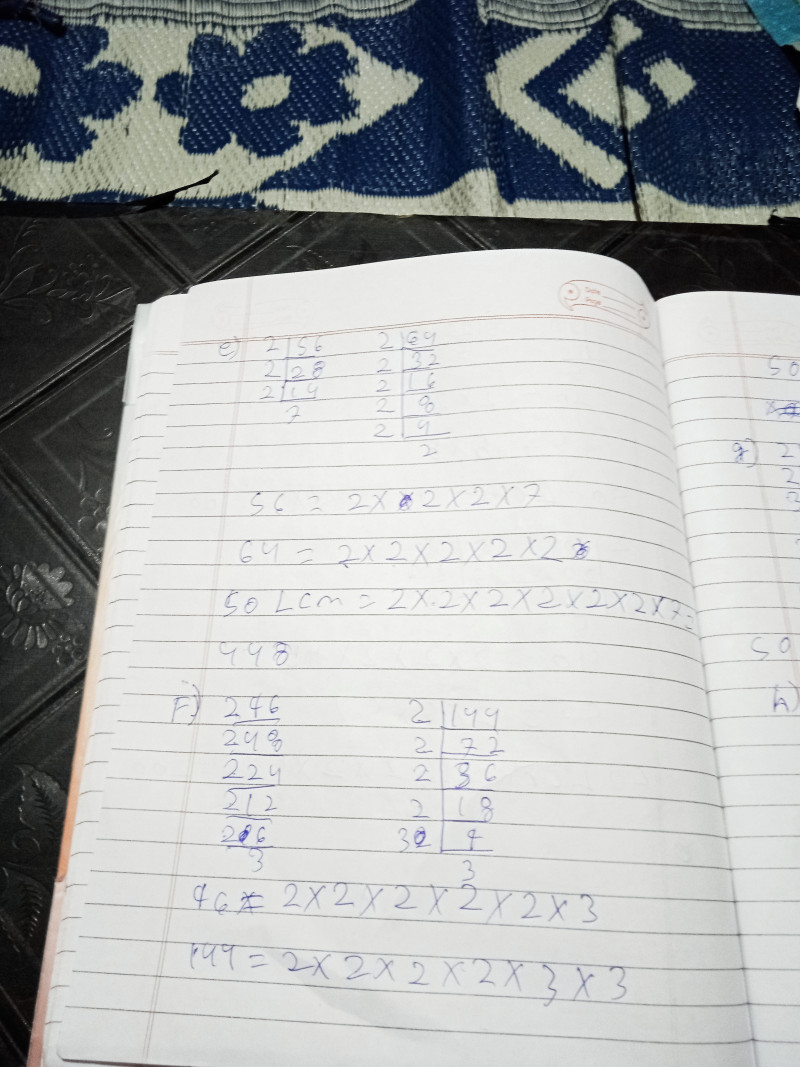 Date
Page
e) 2 56 2 64
2 28 2 32
2 14 2 16
7 2 8
2 4
2
56 = 2 × 2 × 2 × 7
64 = 2 × 2 × 2 × 2 × 2
SO LCM = 2 × 2 × 2 × 2 × 2 × 2 × 7 =
448
F) 2 96 2 144
2 48 2 72
2 24 2 36
2 12 2 18
2 6 3 9
3 3
96 = 2 × 2 × 2 × 2 × 2 × 3
144 = 2 × 2 × 2 × 2 × 3 × 3
SO
g) 2
2
SO
h)